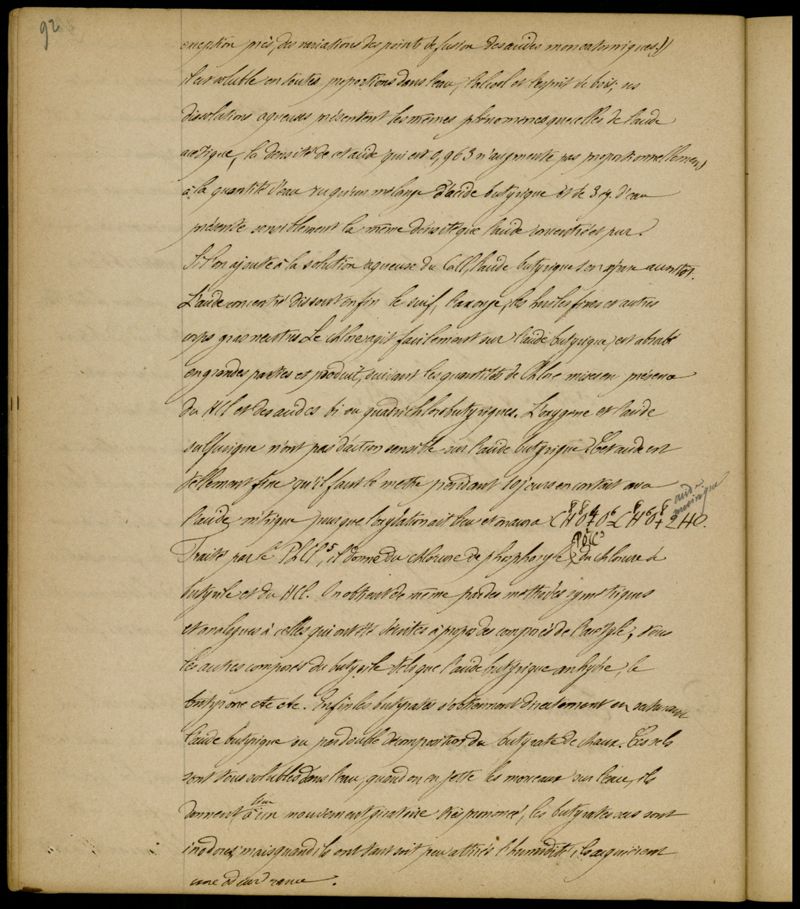 92
exception près, des variations des points de fusion des acides monoatomiques))
il est soluble en toutes proportions dans l'eau, l'alcool et l'esprit de bois; ses
dissolutions aqueuses présentent les mêmes phénomènes que celles de l'acide
acétique, la densité de cet acide qui est 0,963 n'augmente pas proportionnellement
à la quantité d'eau vu qu'un mélange d'acide butyrique et de 3 q. d'eau
présente sensiblement la même densité que l'acide concentré et pur.
Si l'on ajoute à la solution aqueuse du CaCl, l'acide butyrique s'en sépare aussitôt.
L'acide concentré dissout enfin le suif, l'axonge, les huiles fixes et autres
corps gras neutres. Le chlore agit facilement sur l'acide butyrique, est absorbé
en grandes parties et produit, suivant les quantités de Chlore mises en présence
du HCl et des acides bi ou quadrichlorobutyriques. L'oxygène et l'acide
sulfurique n'ont pas d'action sensible sur l'acide butyrique. Cet acide est
tellement fixe qu'il faut le mettre pendant 10 jours en contact avec
l'acide nitrique pour que l'oxydation ait lieu et on aura
acide
Traité par le PhCl5, il donne du chlorure de phosphoryle du chlorure de
butyrile et du HCl. On obtient de même par des méthodes symétriques
et analogues à celles qui ont été décrites à propos des composés de l'acétyle, tous
les autres composés du butyrile tels que l'acide butyrique anhydre, le
butyrone etc etc. Enfin les butyrates s'obtiennent directement en saturant
l'acide butyrique ou par double décomposition du butyrate de chaux. Ces sels
sont tous solubles dans l'eau, quand on en jette les morceaux sur l'eau, ils
donnent lieu à un mouvement giratoire très prononcé, les butyrates secs sont
inodores, mais quand ils ont tant soit peu attiré l'humidité, ils acquièrent
une odeur rance.